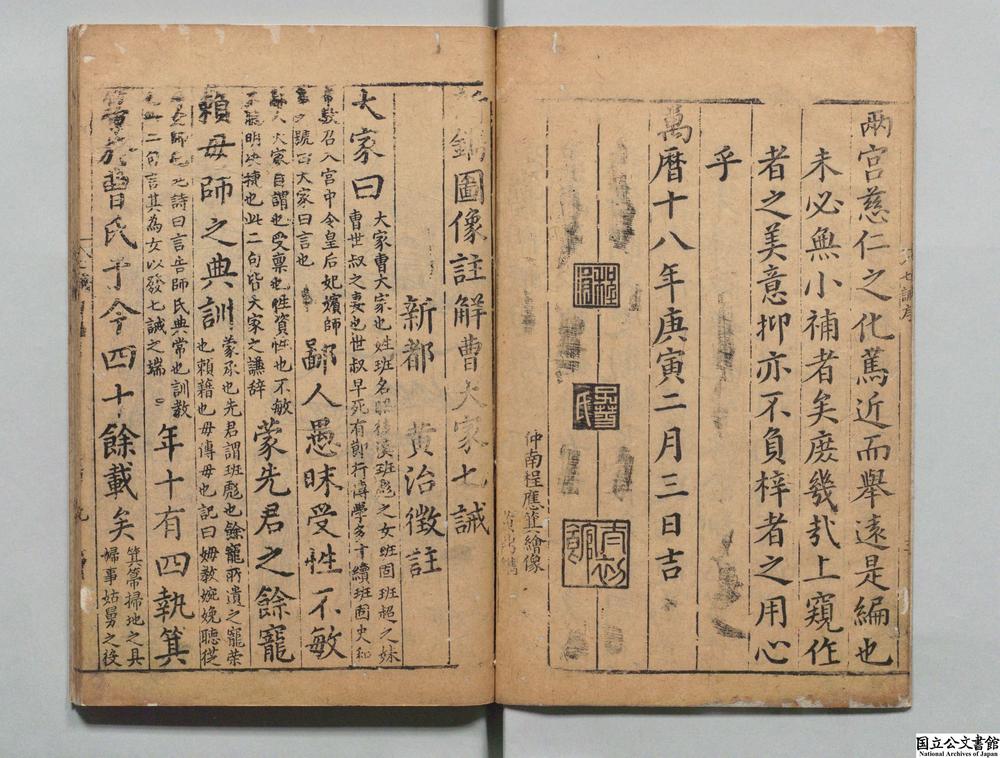 兩宮慈仁之化篤近而舉遠是編也
未必無小補者矣庶幾哉上窺作
者之美意抑亦不負梓者之用心
乎
萬曆十八年庚寅二月三日吉
仲南程應箕繪像
鐫圖像註解曹大家七誡
新都 黃治徵註
大家曰 大家曹大家也姓班名昭後漢班彪之女班固班超之妹
曹世叔之妻也世叔早死有節行博學多才續班固史和
帝數召入宮中令皇后妃嬪師
號曰大家曰言也
鄙人愚昧受性不敏
人大家自謂也受稟也性資性也不敏
不聰明決捷也此二句皆大家之謙辞
蒙先君之餘寵
賴母師之典訓 蒙承也先君謂班彪也餘寵所遺之寵榮
也賴藉也母傅母也記曰姆教婉娩聽從
師氏也詩曰言告師氏典常也訓教
也此二句言其為女以發七誡之端
年十有四執箕
箒於曹氏于今四十餘載矣 箕箒掃地之具
婦事姑舅之役
国立公文書館
National Archives of Japan